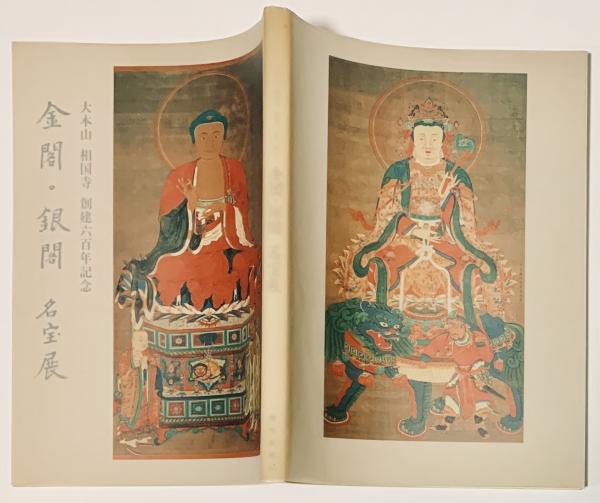 大本山 相国寺 創建六百年記念
金閣・銀閣 名宝展